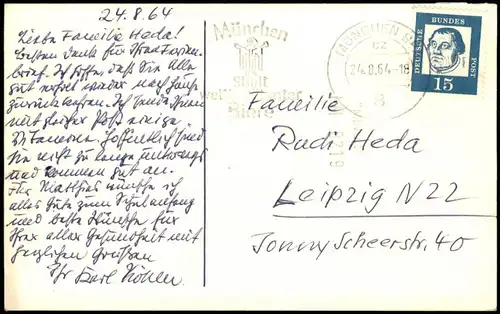 24.8.64
Liebe Familie Heda!
Besten Dank für Ihren Ferien-
brief. Ich hoffe, daß Sie alle
gut wieder nach Hause
zurückkehren. Ich sende Ihnen
mit gleicher Post einige
Hoffentlich sind
Sie nicht zu lange unterwegs
und kommen gut an.
Für Matthias wünsche ich
alles Gute zum Schulanfang
und beste Wünsche für
Ihrer aller Gesundheit mit
herzlichen Grüßen
Ihr Karl Köhler
München
stadt
Biers
MÜNCHEN
cz
24.8.64-18
8
DEUTSCHE BUNDES POST
15
Familie
Rudi Heda
Leipzig N22
Jonny Scheerstr. 40